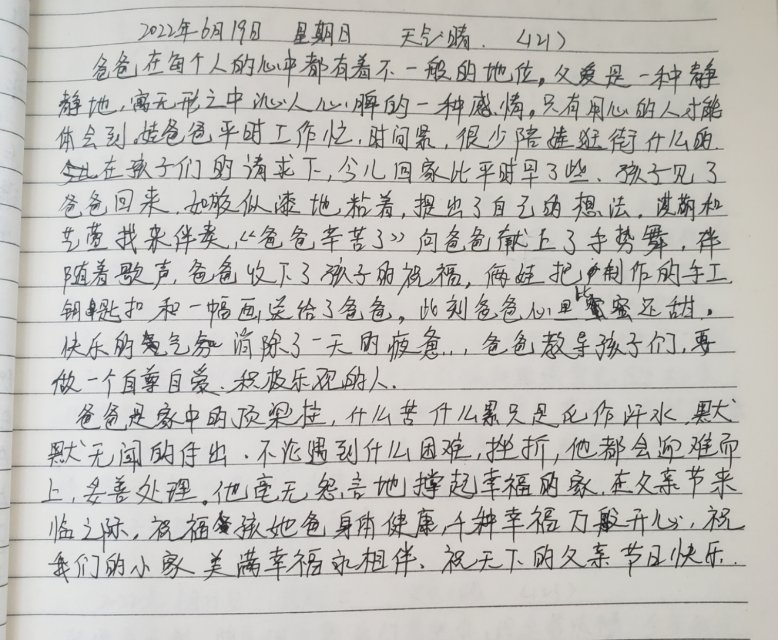 2022年6月19日 星期日 天气晴. (121)
爸爸在每个人的心中都有着不一般的地位。父爱是一种静
静地,寓无形之中沁人心脾的一种感情。只有用心的人才能
体会到。娃爸爸平时工作忙,时间紧,很少陪娃逛街什么的.
在孩子们的请求下,今儿回家比平时早了些.孩子见了
爸爸回来,如胶似漆地粘着,提出了自己的想法,淇湘和
艺蕾找来伴奏,《爸爸辛苦了》向爸爸献上了手势舞,伴
随着歌声,爸爸收下了孩子的祝福,俩娃把制作的手工
钥匙扣和一幅画送给了爸爸。此刻爸爸心里比蜜蜜还甜。
快乐的气氛消除了一天的疲惫...爸爸教导孩子们,要
做一个自尊自爱.积极乐观的人.
爸爸是家中的顶梁柱,什么苦什么累只是化作汗水.默
默无闻的付出.不论遇到什么困难,挫折,他都会迎难而
上,妥善处理。他毫无怨言地撑起幸福的家,在父亲节来
临之际,祝福孩她爸身体健康,千种幸福万般开心,祝
我们的小家美满幸福永相伴、祝天下的父亲节日快乐.